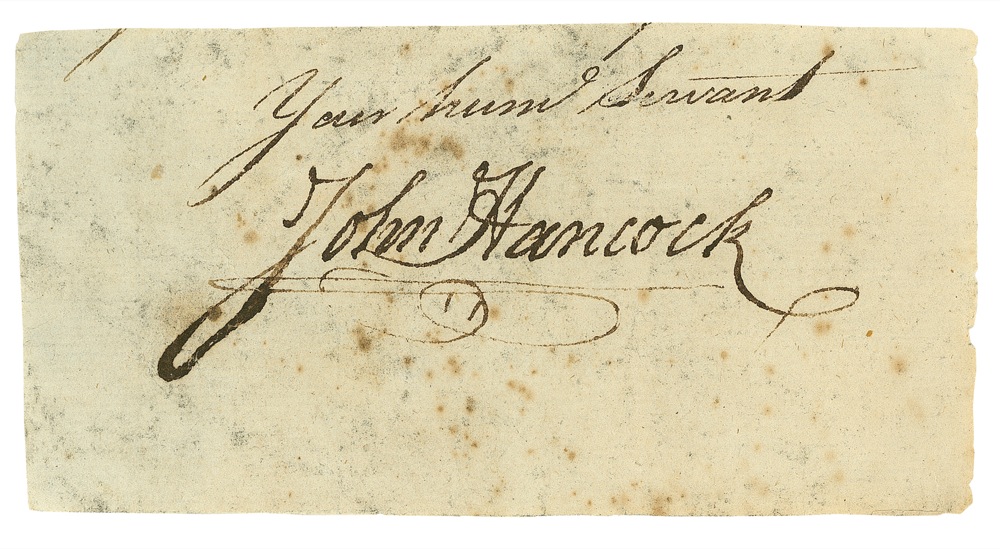 Your humᵉ Servant
John Hancock